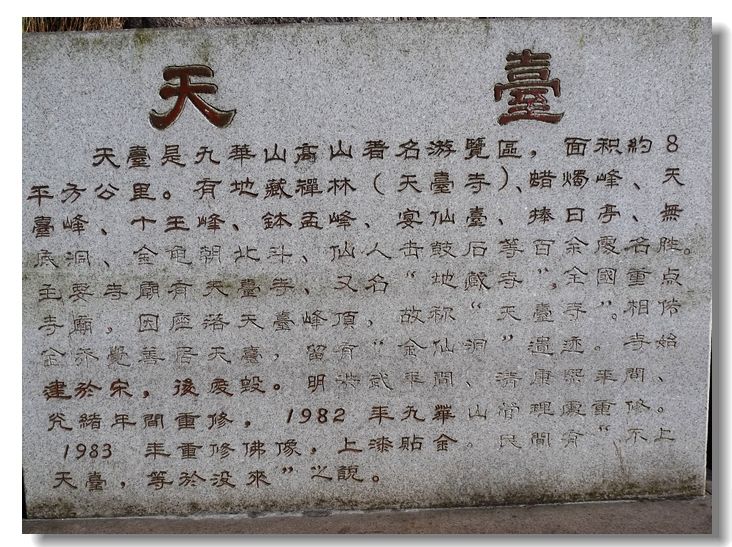 天臺
天臺是九華山高山著名游覽區，面积約8
平方公里。有地藏禪林（天臺寺）、蜡燭峰、天
臺峰、十王峰、鉢盂峰、宴仙臺、捧日亭、無
底洞、金龟朝北斗、仙人击鼓石等百余處名胜。
主要寺廟有天臺寺、又名“地藏寺”，全國重点
寺廟。因座落天臺峰頂，故称“天臺寺”。相传
金乔覺善居天臺，留有“金仙洞”遺迹。寺始
建於宋，後廢毀。明洪武年間、清康熙年間、
光緒年間重修，1982年九華山管理處重修。
1983年重修佛像，上漆貼金。民間有“不上
天臺，等於没來”之說。